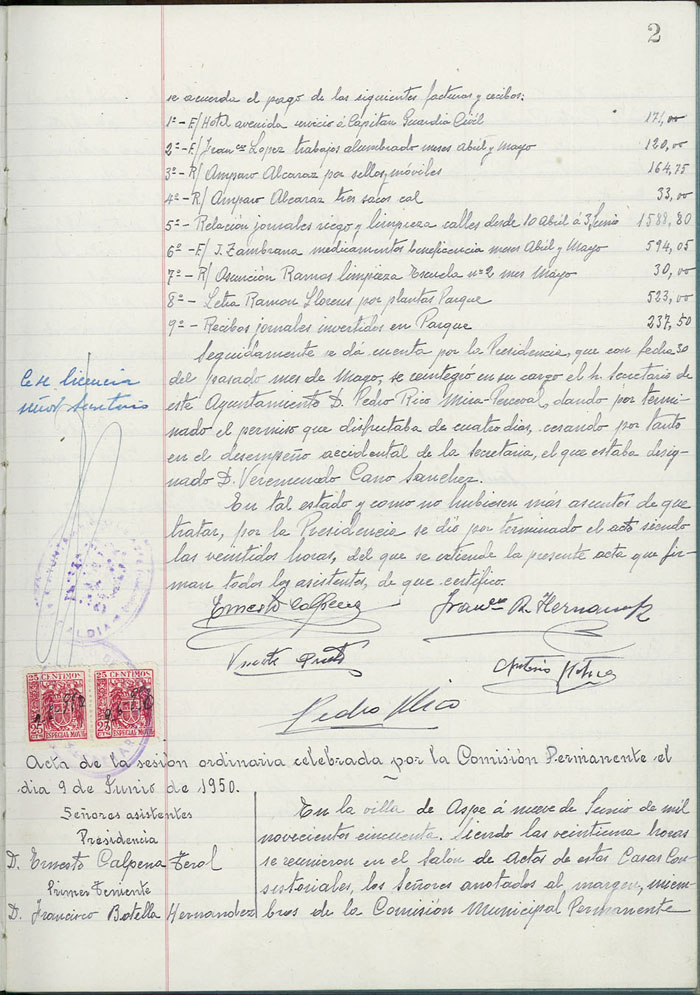 2
se acuerda el pago de las siguientes facturas y recibos:
1º - F/ Hotel avenida servicio á Capitan Guardia Civil 171,00
2º - F/ Franco Lopez trabajos alumbrado meses Abril y Mayo 120,00
3º - R/ Amparo Alcaraz por sellos móviles 164,75
4º - R/ Amparo Alcaraz tres sacos cal 33,00
5º - Relación jornales riego y limpieza calles desde 10 Abril á 3 Junio 1588,80
6º - F/ J. Zambrana medicamentos beneficencia meses Abril y Mayo 594,05
7º - R/ Asunción Ramos limpieza Escuela nº 2 mes Mayo 30,00
8º - Letra Ramon Llorens por plantas Parque 523,00
9º - Recibos jornales invertidos en Parque 237,50
Seguidamente se dá cuenta por la Presidencia, que con fecha 30
del pasado mes de Mayo, se reintegró en su cargo el Sr. Secretario de
este Ayuntamiento D. Pedro Rico Mira-Perceval, dando por termi-
nado el permiso que disfrutaba de cuatro dias, cesando por tanto
en el desempeño accidental de la Secretaria, el que estaba desig-
nado D. Veremundo Cano Sanchez.
Cese licencia
señor Secretario
En tal estado y como no hubiesen más asuntos de que
tratar, por la Presidencia se dió por terminado el acto siendo
las veintidos horas, del que se extiende la presente acta que fir-
man todos los asistentes, de que certifico.
Ernesto Calpena
Franco B. Hernandez
Vicente Prieto
Antonio
Pedro Rico
25 CENTIMOS 25 CENTIMOS
ESPECIAL MOVIL ESPECIAL MOVIL
Acta de la sesión ordinaria celebrada por la Comisión Permanente el
dia 9 de Junio de 1950.
Señores asistentes
Presidencia
D. Ernesto Calpena Terol
Primer Teniente
D. Francisco Botella Hernandez
En la villa de Aspe á nueve de Junio de mil
novecientos cincuenta. Siendo las veintiuna horas
se reunieron en el Salón de Actos de estas Casas Con-
sistoriales, los Señores anotados al margen, miem-
bros de la Comisión Municipal Permanente